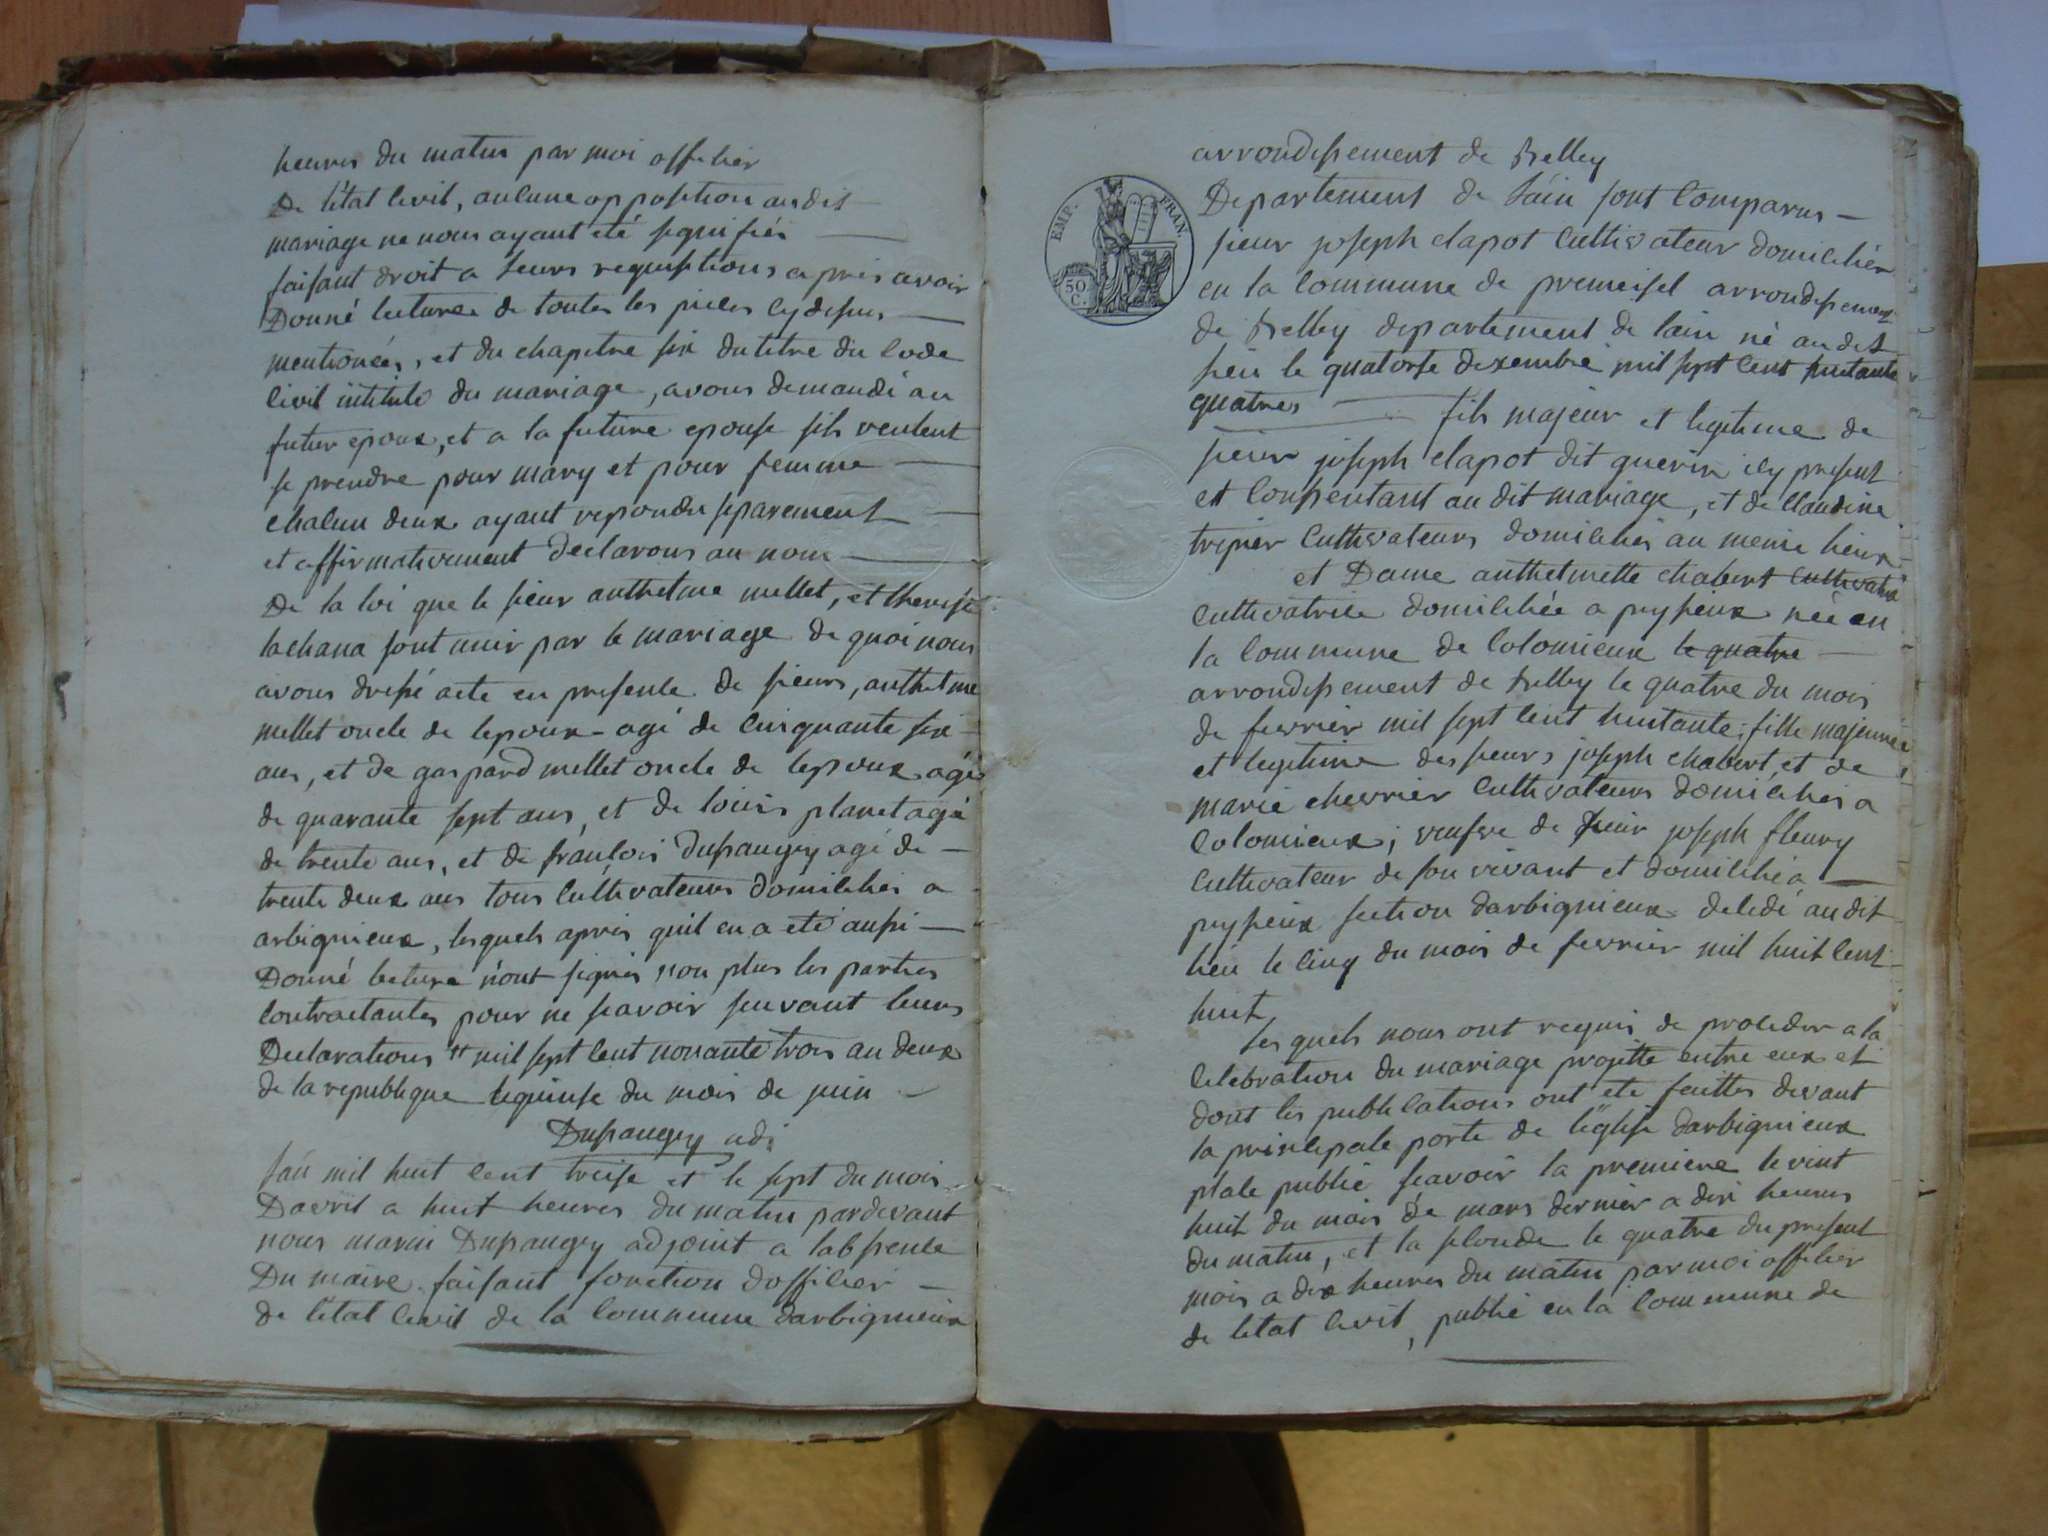 heures du matin par moi officier
De l'état civil, aucune opposition audit
mariage ne nous ayant eté signifiés
faisant droit a leurs requisitions apres avoir
Donné lecturee de toutes les pieces cydessus
mentionées, et du chapitre six du titre du code
civil intitulé du mariage, avons demandé au
futur epoux, et a la future epouse sils veulent
se prendre pour mary et pour femme
chacun deux ayant repondu separement
et affirmativement declarons au nom
De la loi que le sieur anthelme mellet, et therese
lachana sont unir par le mariage de quoi nous
avons dressé acte en presence de sieurs, anthelme
mellet oncle de lepoux agé de cinquante six
ans, et de gaspard mellet oncle de lepoux agé
de quarante sept ans, et de louis planet agé
de trente ans, et de francois Dupaugey agé de
trente deux ans tous cultivateurs domiciliés a
arbignieux, lesquels apres quil en a eté aussi
Donné lecture n'ont signés non plus les parties
contractantes pour ne scavoir suivant leurs
Declarations " mil sept cent nonante trois an deux
de la republique le quinse du mois de juin
Dupaugey adj
l'an mil huit cent treise et le sept du mois
Davril a huit heures du matin pardevant
nous marin Dupaugey adjoint a labsence
Du maire faisant fonction dofficier
de l'état civil de la commune darbignieux
arrondissement de Belley
Departement de l'ain sont comparus
EMP. FRAN.
50 C.
sieur joseph clapot cultivateur domicilier
en la commune de premeisel arrondissement
de Belley departement de lain né audit
lieu le quatorse dexembre mil sept cent huitante
quatres fils majeur et legitime de
sieur joseph clapot dit guerin icy present
et consentant au dit mariage, et de claudine
tripier cultivateurs domiciliés au meme lieux
et Dame anthelmette chabert cultivatri
cultivatrice domiciliée a peysieux née en
la commune de colomieux le quatre
arrondissement de belley le quatre du mois
de fevrier mil sept cent huitante; fille majeure
et legitime des sieurs joseph chabert et de
marie chevrier cultivateurs domiciliés a
colomieux; veufve de sieur joseph fleury
cultivateur de son vivant et domicilié a
peysieux section darbignieux decedé audit
lieu le cinq du mois de fevrier mil huit cent
huit
les quels nous ont requis de proceder a la
celebration du mariage projetté entre eux et
dont les publications ont eté faittes devant
la principale porte de l'eglise darbignieux
place public scavoir la premiere le vint
huit du mois de mars dernier a dix heures
du matin, et la seconde le quatre du present
mois a dix heures du matin par moi officier
de létat civil, publié en la commune de